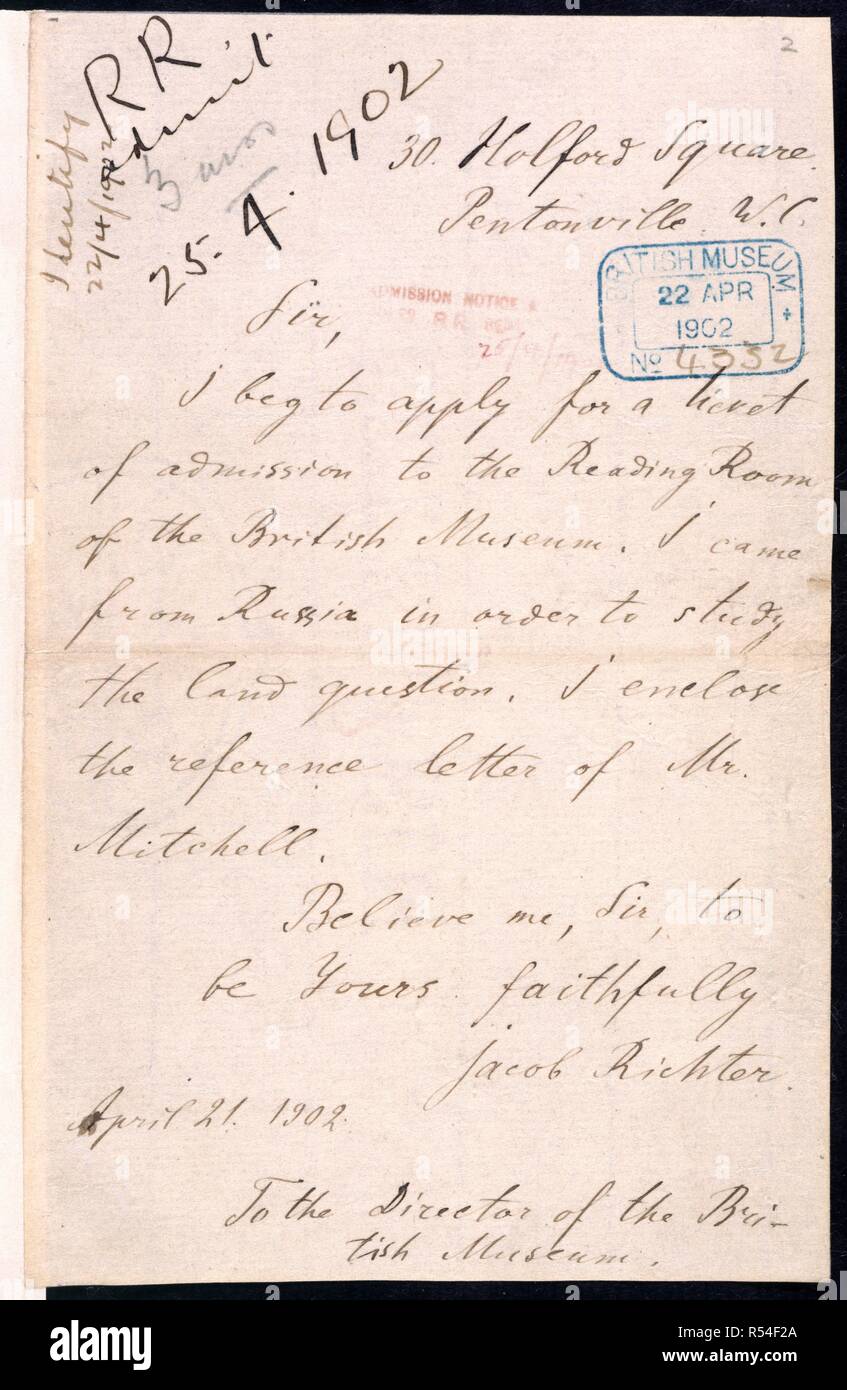 2
RR
admit
25. 4. 1902
22/4/1902
30. Holford Square.
Pentonville. W.C.
BRITISH MUSEUM
22 APR
1902
No 4332
ADMISSION NOTICE &
RR
Sir,
I beg to apply for a ticket
of admission to the Reading Room
of the British Museum. I came
from Russia in order to study
the land question. I enclose
the reference letter of Mr.
Mitchell.
Believe me, Sir, to
be Yours faithfully
Jacob Richter.
April 21. 1902.
To the Director of the Bri-
tish Museum.
alamy
Image ID: R54F2A
www.alamy.com